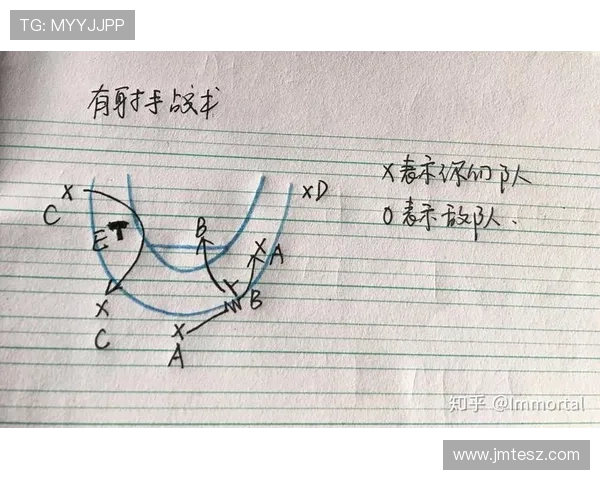 TG: MYYJJPP
有射手战术
X表示你们队
O表示敌队.
X
C
E
X
C
B
X
A
B
X
A
XD
知乎 @Immortal
www.jmtesz.com